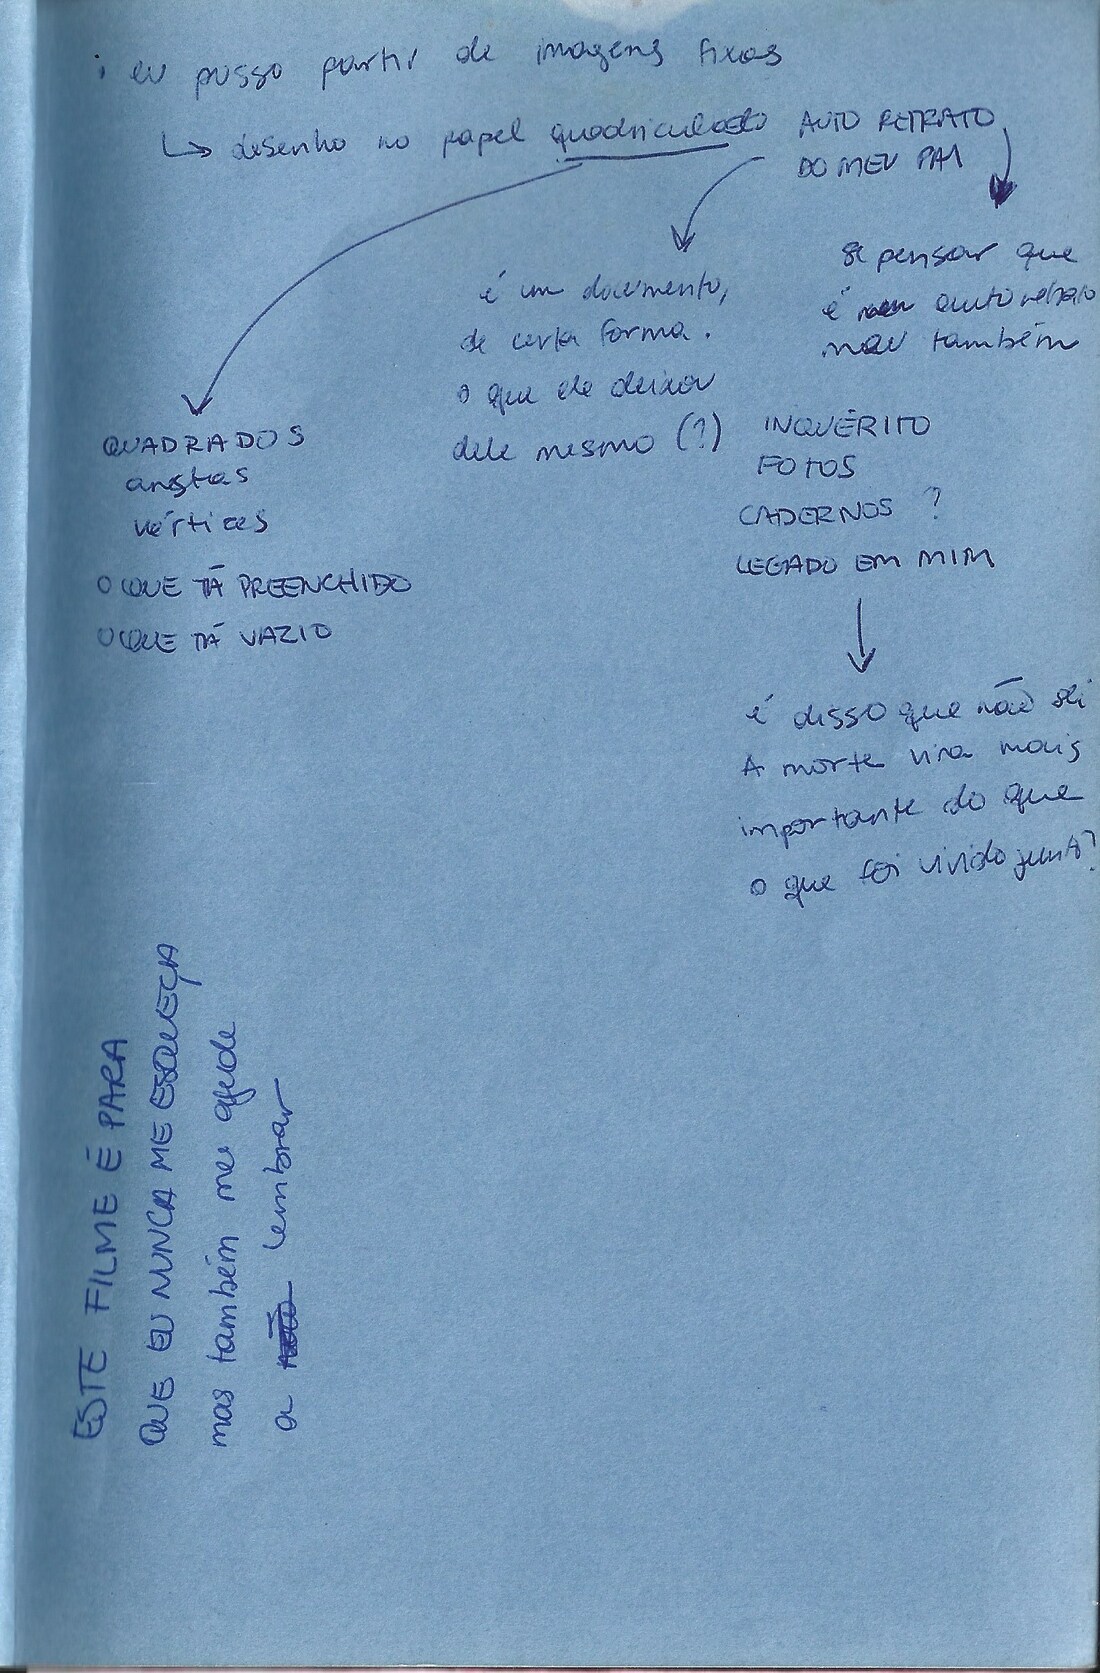 eu posso partir de imagens fixas
↳ desenho no papel quadriculado AUTO RETRATO
DO MEU PAI
se pensar que
é auto retrato
meu também
é um documento,
de certa forma.
o que ele deixou
dele mesmo (?)
QUADRADOS
arestas
vértices
O QUE TÁ PREENCHIDO
O QUE TÁ VAZIO
INQUÉRITO
FOTOS
CADERNOS ?
LEGADO EM MIM
é disso que não sei
A morte vira mais
importante do que
o que foi vivido junto?
ESTE FILME É PARA
QUE EU NUNCA ME ESQUEÇA
mas também me ajude
a não lembrar